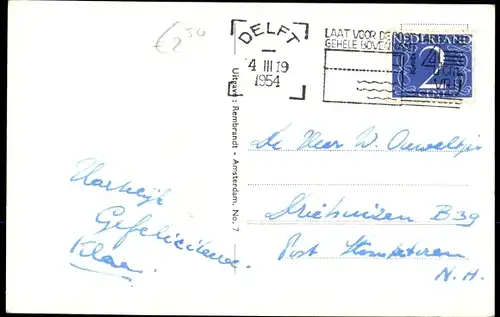 €2,50
DELFT
4 III 19
1954
LAAT VOOR DE
GEHELE BOVEN
NEDERLAND
2
Uitgave: Rembrandt - Amsterdam. No. 7
De Heer W.
Driehuizen B39
Post
N.H.
Hartelijk
Gefeliciteerd.
Klaas.